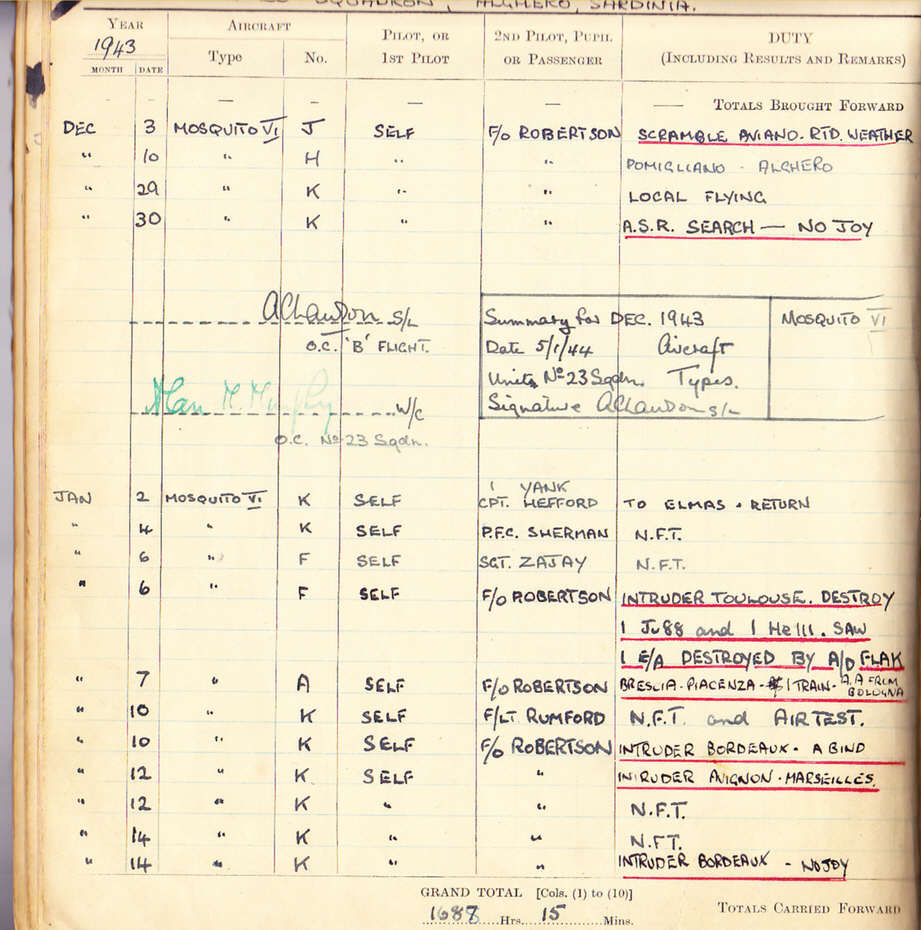 SQUADRON, ALGHERO, SARDINIA.
YEAR AIRCRAFT PILOT, OR 2ND PILOT, PUPIL DUTY
1943 Type No. 1ST PILOT OR PASSENGER (INCLUDING RESULTS AND REMARKS)
MONTH DATE
— — — — — TOTALS BROUGHT FORWARD
DEC 3 MOSQUITO VI J SELF F/O ROBERTSON SCRAMBLE AVIANO. RTD. WEATHER
" 10 " H " " POMIGLIANO - ALGHERO
" 29 " K " " LOCAL FLYING
" 30 " K " " A.S.R. SEARCH — NO JOY
S/L
O.C. 'B' FLIGHT.
Summary for DEC. 1943 MOSQUITO VI
Date 5/1/44 Aircraft
Units No 23 Sqdn. Types.
Signature S/L
Alan M. Murphy W/C
O.C. No 23 Sqdn.
1 YANK
JAN 2 MOSQUITO VI K SELF CPT. HEFFORD TO ELMAS & RETURN
" 4 " K SELF P.F.C. SHERMAN N.F.T.
" 6 " F SELF SGT. ZAJAY N.F.T.
" 6 " F SELF F/O ROBERTSON INTRUDER TOULOUSE. DESTROY
1 Ju88 and 1 He111. SAW
1 E/A DESTROYED BY A/D FLAK
" 7 " A SELF F/O ROBERTSON BRESCIA - PIACENZA - 1 TRAIN - A.A FROM BOLOGNA
" 10 " K SELF F/LT RUMFORD N.F.T. and AIR TEST.
" 10 " K SELF F/O ROBERTSON INTRUDER BORDEAUX - A BIND
" 12 " K SELF " INTRUDER AVIGNON - MARSEILLES.
" 12 " K " " N.F.T.
" 14 " K " " N.F.T.
" 14 " K " " INTRUDER BORDEAUX - NO JOY
GRAND TOTAL [Cols. (1) to (10)]
1688 Hrs. 15 Mins. TOTALS CARRIED FORWARD